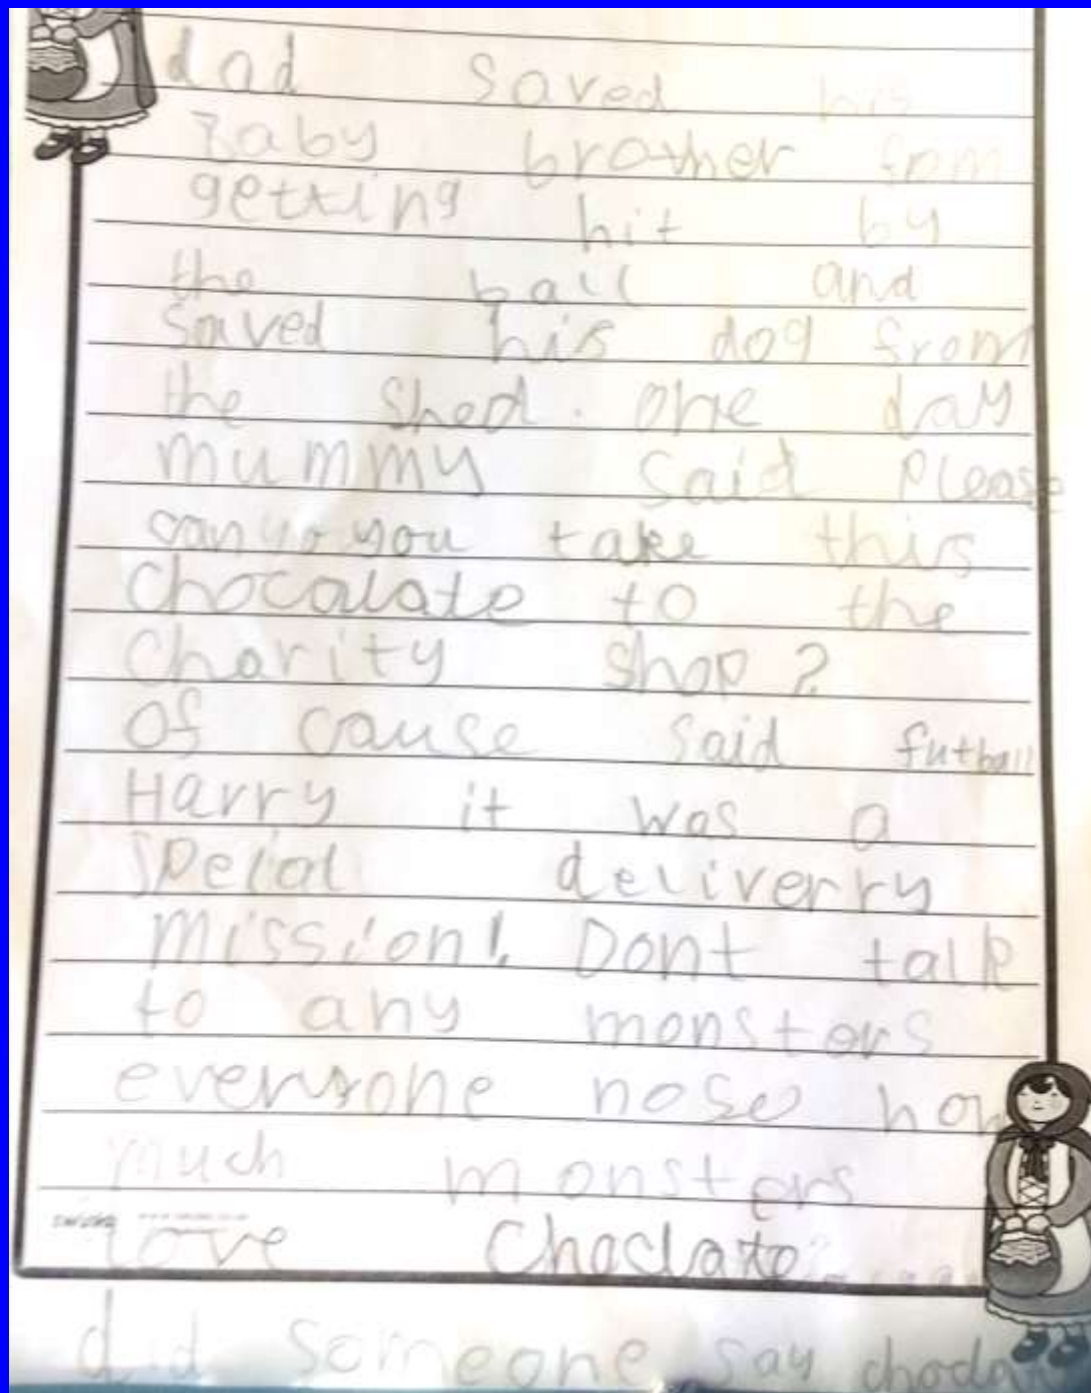 dad saved his
baby brother from
getting hit by
the ball and
saved his dog from
the shed. one day
mummy said Please
can yo you take this
chocalate to the
charity shop?
Of cause said futball
Harry it was a
spelal deliverry
mission! Dont talk
to any monsters
everyone nose how
much monsters
love Choclate
did someone say